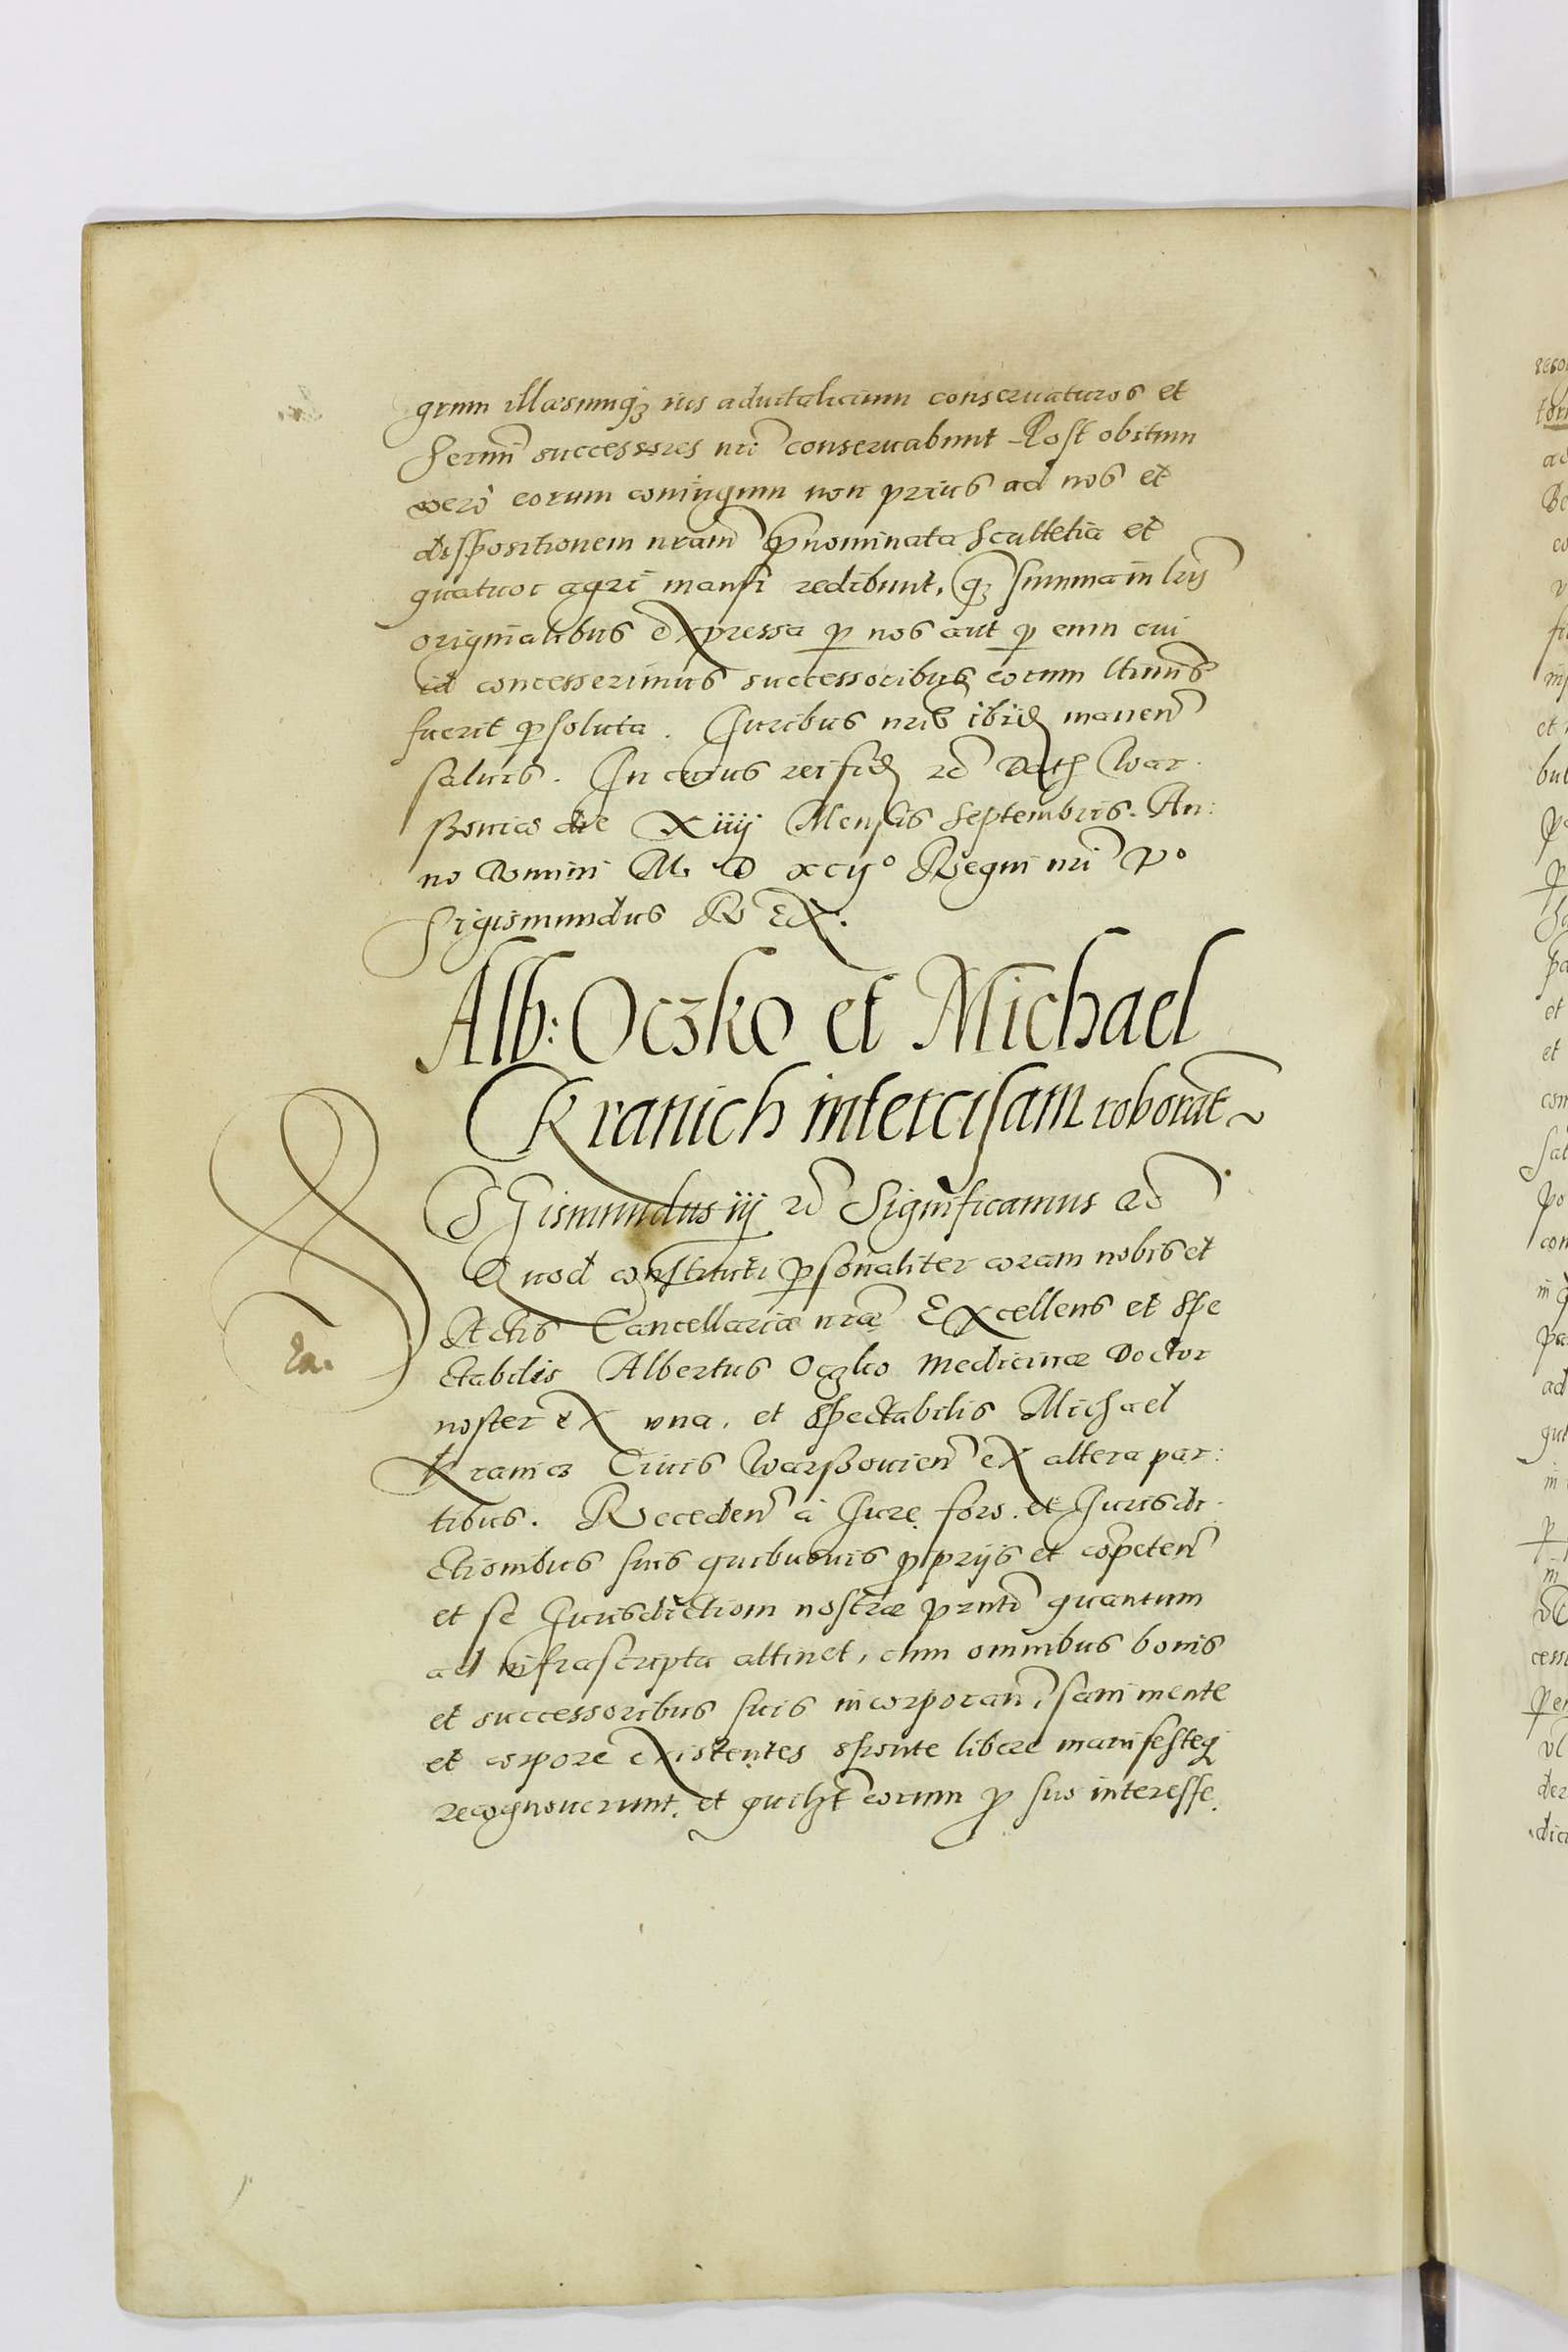 grum illæsumq₃ ius aduitalicium conseruaturos et
Sermi successores nri conseruabunt Post obitum
vero eorum coniugum non prius ad nos et
dispositionem nram prænominata Scultetia et
quatuor agri mansi redibunt, q₃ summa in lrys
originalibus expressa p nos aut p eum cui
id concesserimus successoribus eorum ltimis
fuerit psoluta. Juribus nris ibid manen
saluis. In cuius rei fid rc Dat War
szouiæ die Xiiij Mensis Septembris. An:
no Domini M. D xcijo Regni nri Vo
Sigismundus REX.
Alb: Oczko et Michael
Kranich intercisam roborāt
SGismundus iij rc Significamus rc
Quod constituti psonaliter coram nobis et
Actis Cancellariæ nræ Excellens et Spe
ctabilis Albertus Oczko Medicinæ Doctor
noster ex vna, et Spectabilis Michael
Kranich Ciuis Warszouien ex altera par:
tibus. Receden à Jure, foro, et Jurisdi
ctionibus suis quibusuis pprijs et cōpeten
et se Jurisdictioni nostræ prnti quantum
ad infrascripta attinet, cum omnibus bonis
et successoribus suis incorporan, sani mente
et corpore existentes sponte libere manifesteq
recognouerunt, et quilzt eorum p suo interesse,